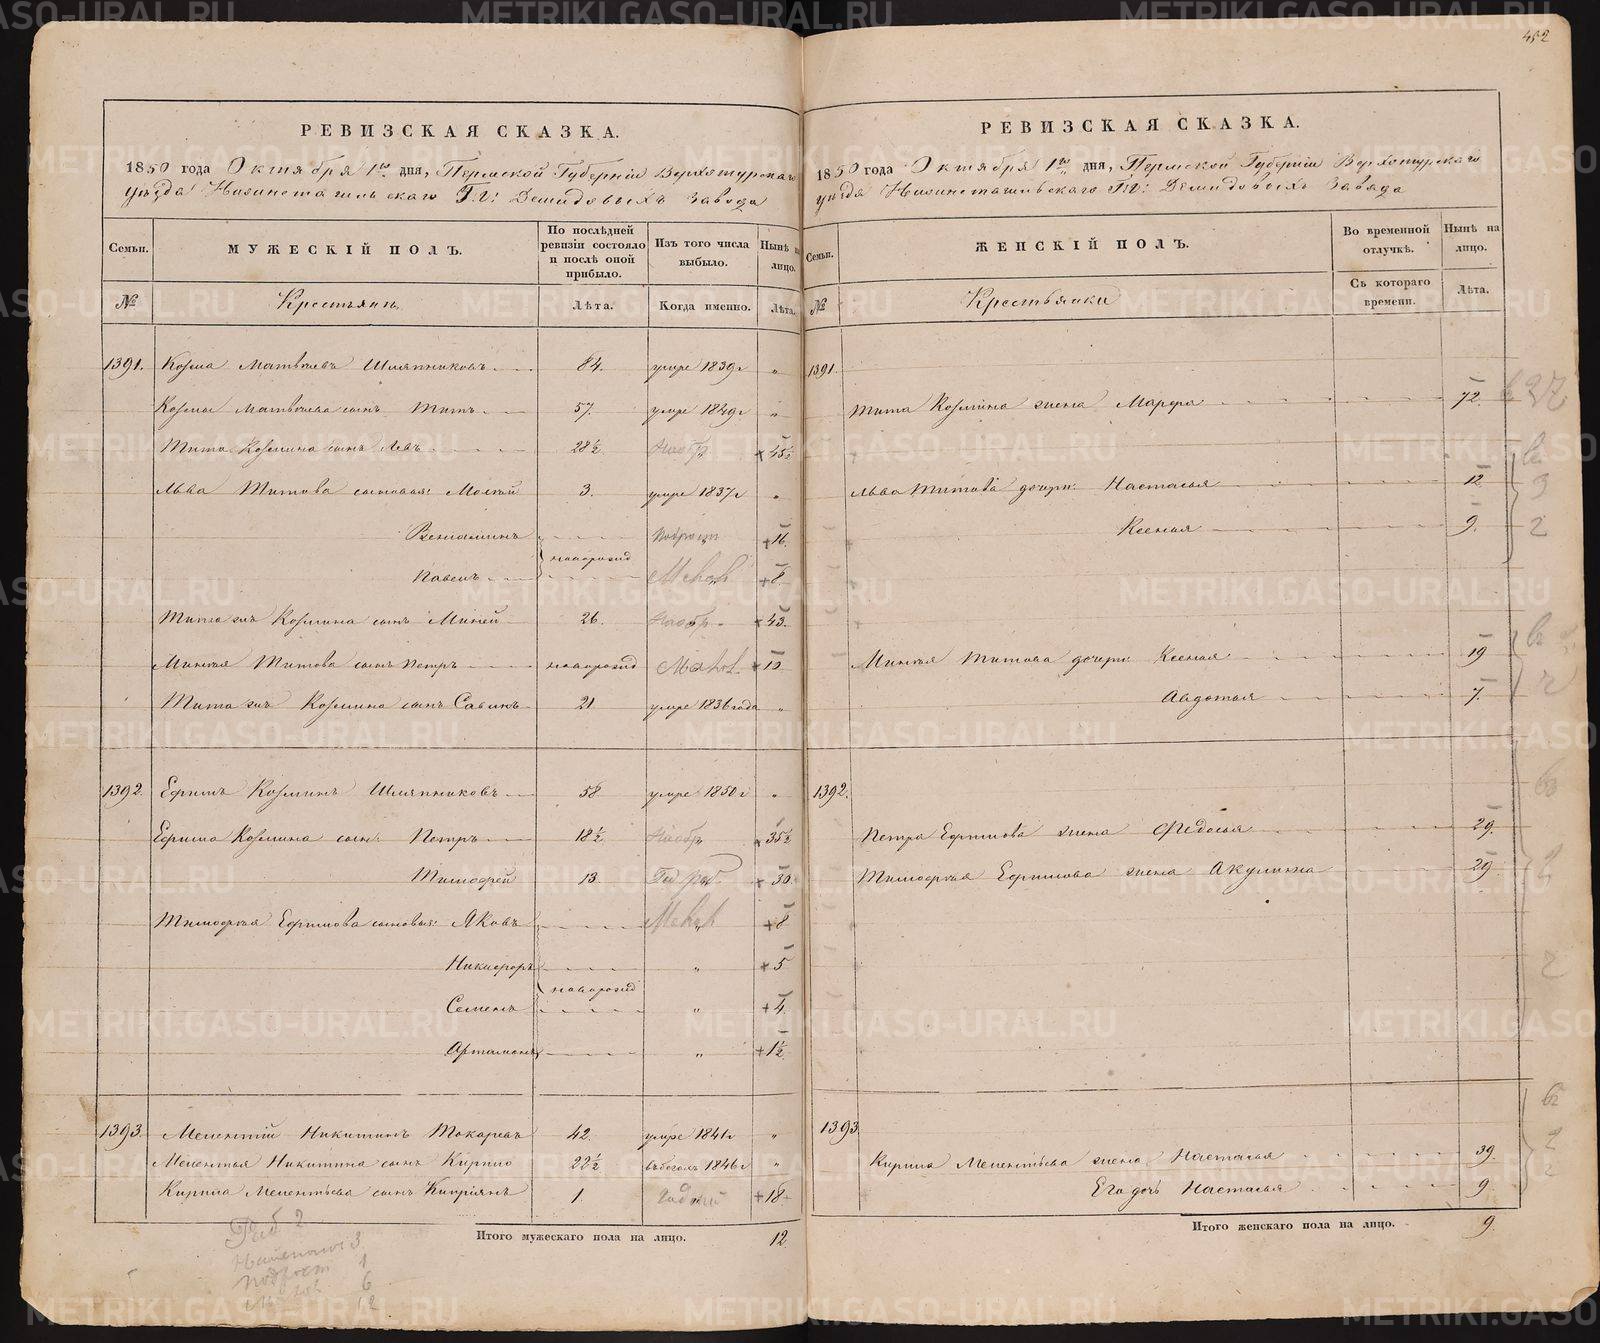 452
РЕВИЗСКАЯ СКАЗКА.
1850 года Октября 1го дня, Пермской Губерніи Верхотурскаго
уѣзда Нижнетагильскаго Г.г: Демидовыхъ Завода
Семьи. МУЖЕСКІЙ ПОЛЪ. По послѣдней ревизіи состояло и послѣ оной прибыло. Изъ того числа выбыло. Нынѣ на лицо.
№ Крестьянъ Лѣта. Когда именно. Лѣта.
1391. Козма Матвѣевъ Шляпниковъ 84. умре 1839г "
Козмы Матвѣева сынъ Титъ 57. умре 1849г "
Тита Козмина сынъ Левъ 28½ + 45½
Льва Титова сыновья: Моисей 3. умре 1837г "
Веніаминъ Подрост + 16.
новорожд
Павелъ + 8.
Тита жъ Козмина сынъ Миней 26. + 43.
Минея Титова сынъ Петръ новорожд + 10
Тита жъ Козмина сынъ Савинъ 21 умре 1836 года "
1392. Ефимъ Козминъ Шляпниковъ 58 умре 1850г "
Ефима Козмина сынъ Петръ 18½ + 35½
Тимофей 13. + 30.
Тимофея Ефимова сыновья: Яковъ + 8
Никифоръ " + 5
новорожд
Семенъ " + 4.
Артамонъ " + 1½
1393. Мелентій Никитинъ Токаревъ 42. умре 1841г "
Мелентья Никитина сынъ Кирило 22½ въ бѣгахъ 1846г "
Кирила Мелентьева сынъ Кипріянъ 1 + 18
Итого мужескаго пола на лицо. 12.
Раб 2
3
Подрост 1
6
12
РЕВИЗСКАЯ СКАЗКА.
1850 года Октября 1го дня, Пермской Губерніи Верхотурскаго
уѣзда Нижнетагильскаго Г.г: Демидовыхъ Завода
Семьи. ЖЕНСКІЙ ПОЛЪ. Во временной отлучкѣ. Нынѣ на лицо.
№ Крестьянки Съ котораго времени. Лѣта.
1391.
Тита Козмина жена Марфа 72.
Льва Титова дочери: Настасья 12
Ксенья 9.
Минея Титова дочери: Ксенья 19
Авдотья 7.
1392.
Петра Ефимова жена Федосья 29.
Тимофея Ефимова жена Акулина 29.
1393.
Кирила Мелентьева жена Настасья 39.
Его дочь Настасья 9
Итого женскаго пола на лицо. 9.
METRIKI.GASO-URAL.RU